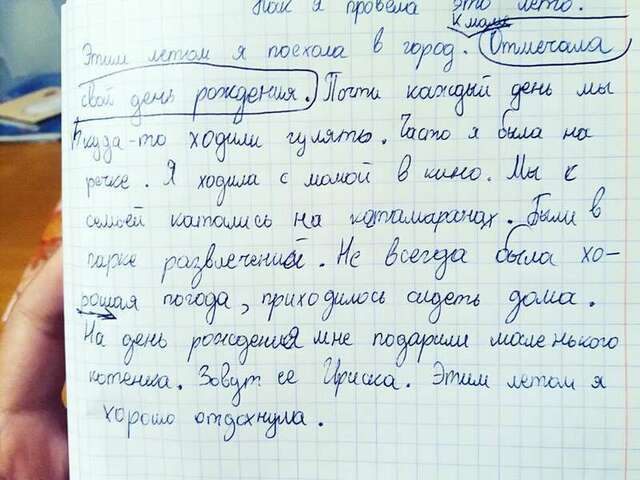 Как я провела это лето.
к маме
Этим летом я поехола в город. Отмечала
свой день рождения. Почти каждый день мы
куда-то ходили гулять. Часто я была на
речке. Я ходила с мамой в кино. Мы с
семьёй катались на катамаранах. Были в
парке развлечений. Не всегда была хо-
рошая погода, приходилось сидеть дома.
На день рождения мне подарили маленького
котенка. Зовут ее Ириска. Этим летом я
хорошо отдохнула.